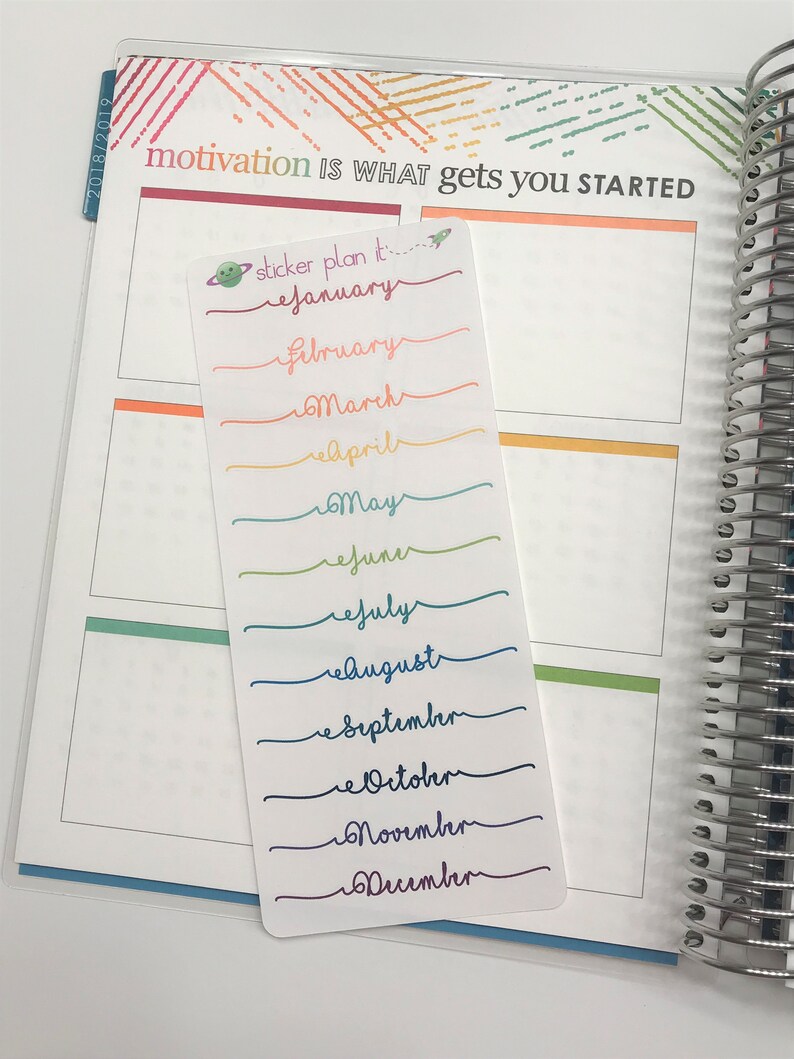 2018/2019
motivation IS WHAT gets you STARTED
sticker plan it
January
February
March
April
May
June
July
August
September
October
November
December